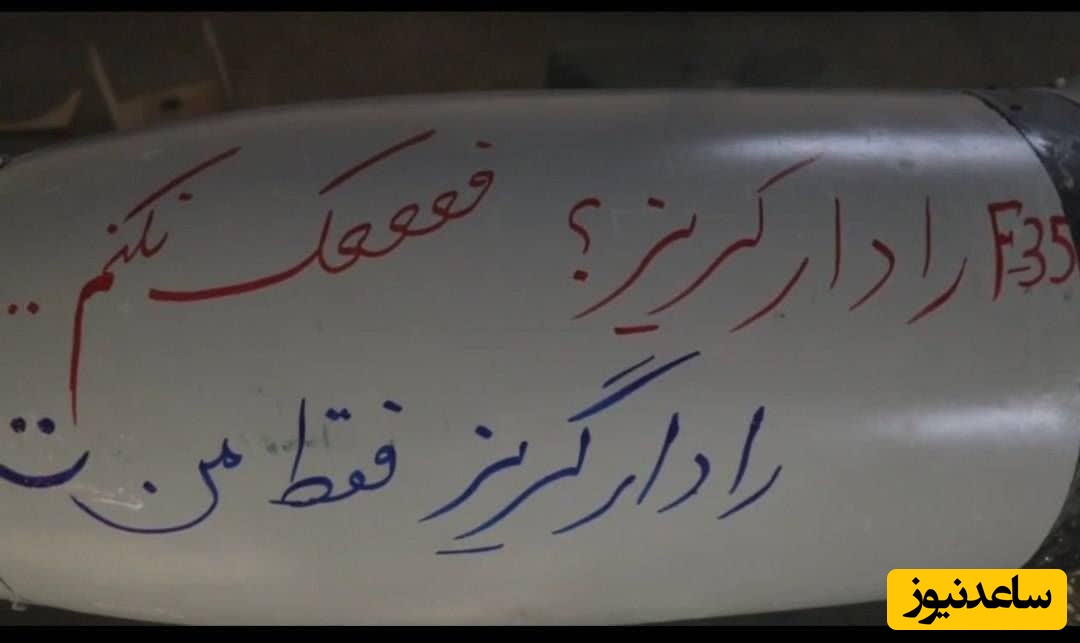 F-35 رادار گریز؟ فففففک نکنم ..
رادار گریز فقط من
ساعدنیوز